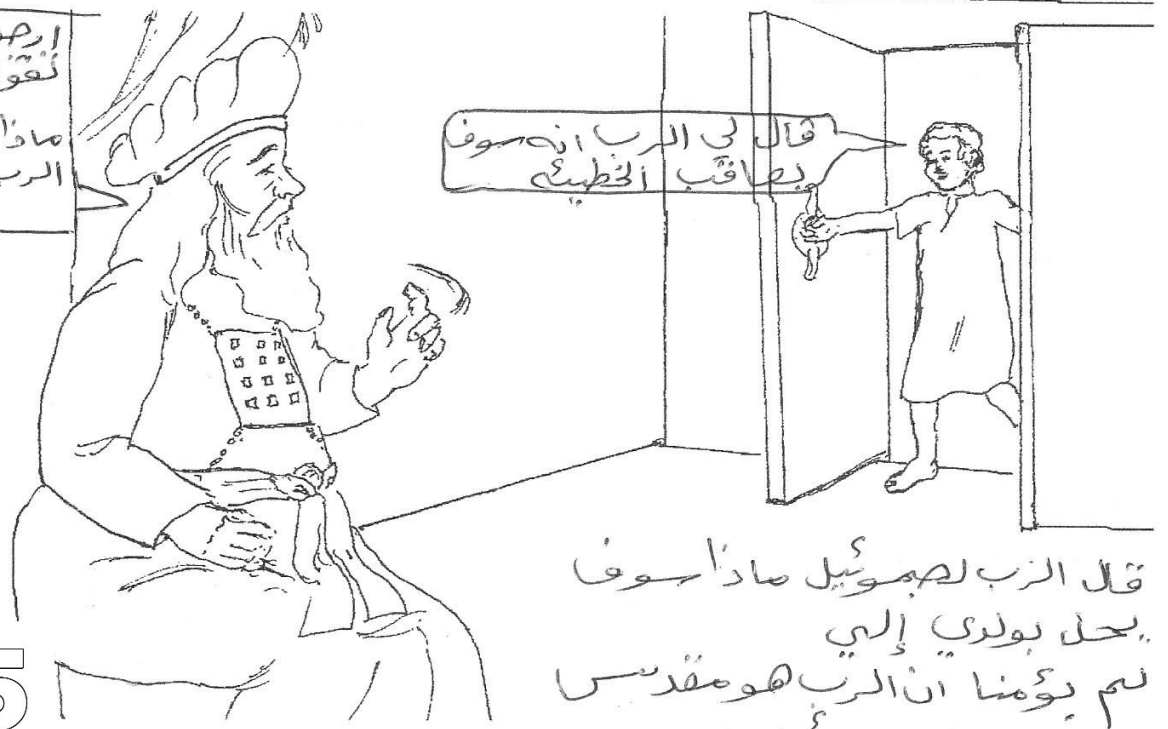 ماذا
الرب
قال لي الرب انه سوف
يعاقب الخطيئه
قال الرب لصموئيل ماذا سوف
يحل بولدي إلي
لم يؤمنا ان الرب هو مقدس